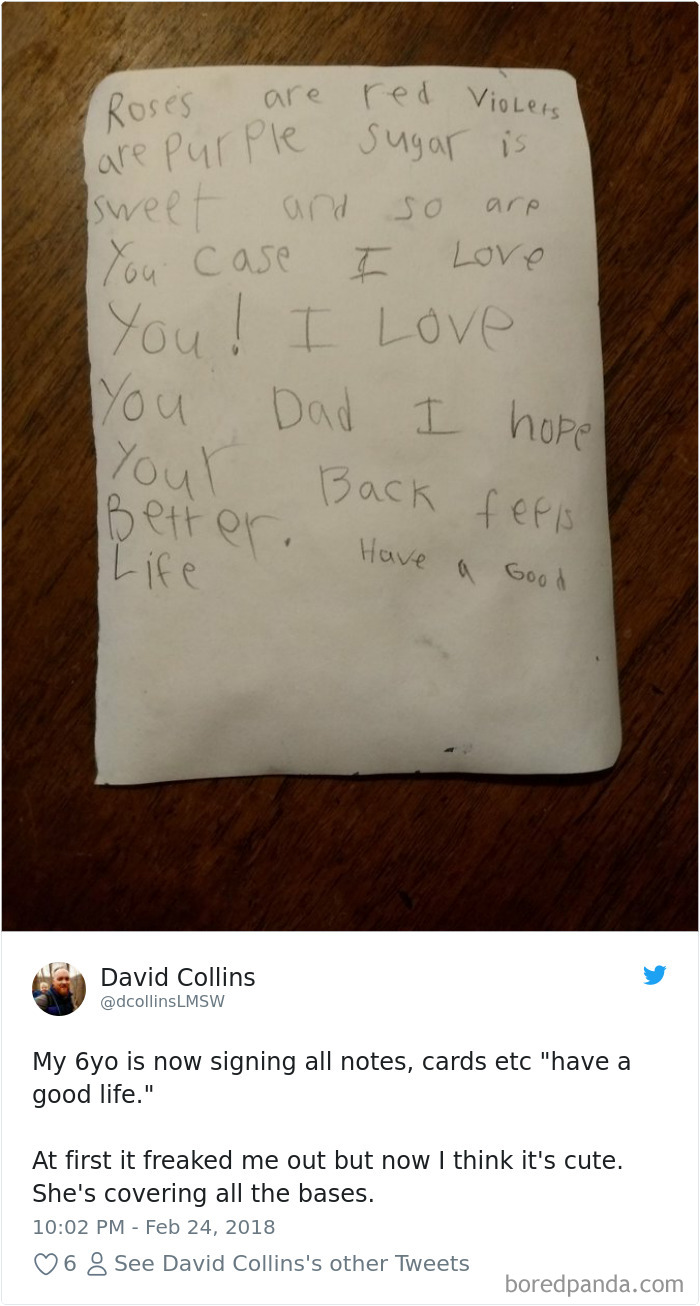 Roses are red Violets
are Purple sugar is
sweet and so are
You case I Love
You! I Love
You Dad I hope
Your Back feels
Better. Have a Good
Life
David Collins
@dcollinsLMSW
My 6yo is now signing all notes, cards etc "have a
good life."
At first it freaked me out but now I think it's cute.
She's covering all the bases.
10:02 PM - Feb 24, 2018
6 See David Collins's other Tweets
boredpanda.com